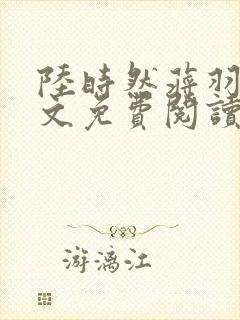 陸時然蒋羽
文免費閱讀
游漓江